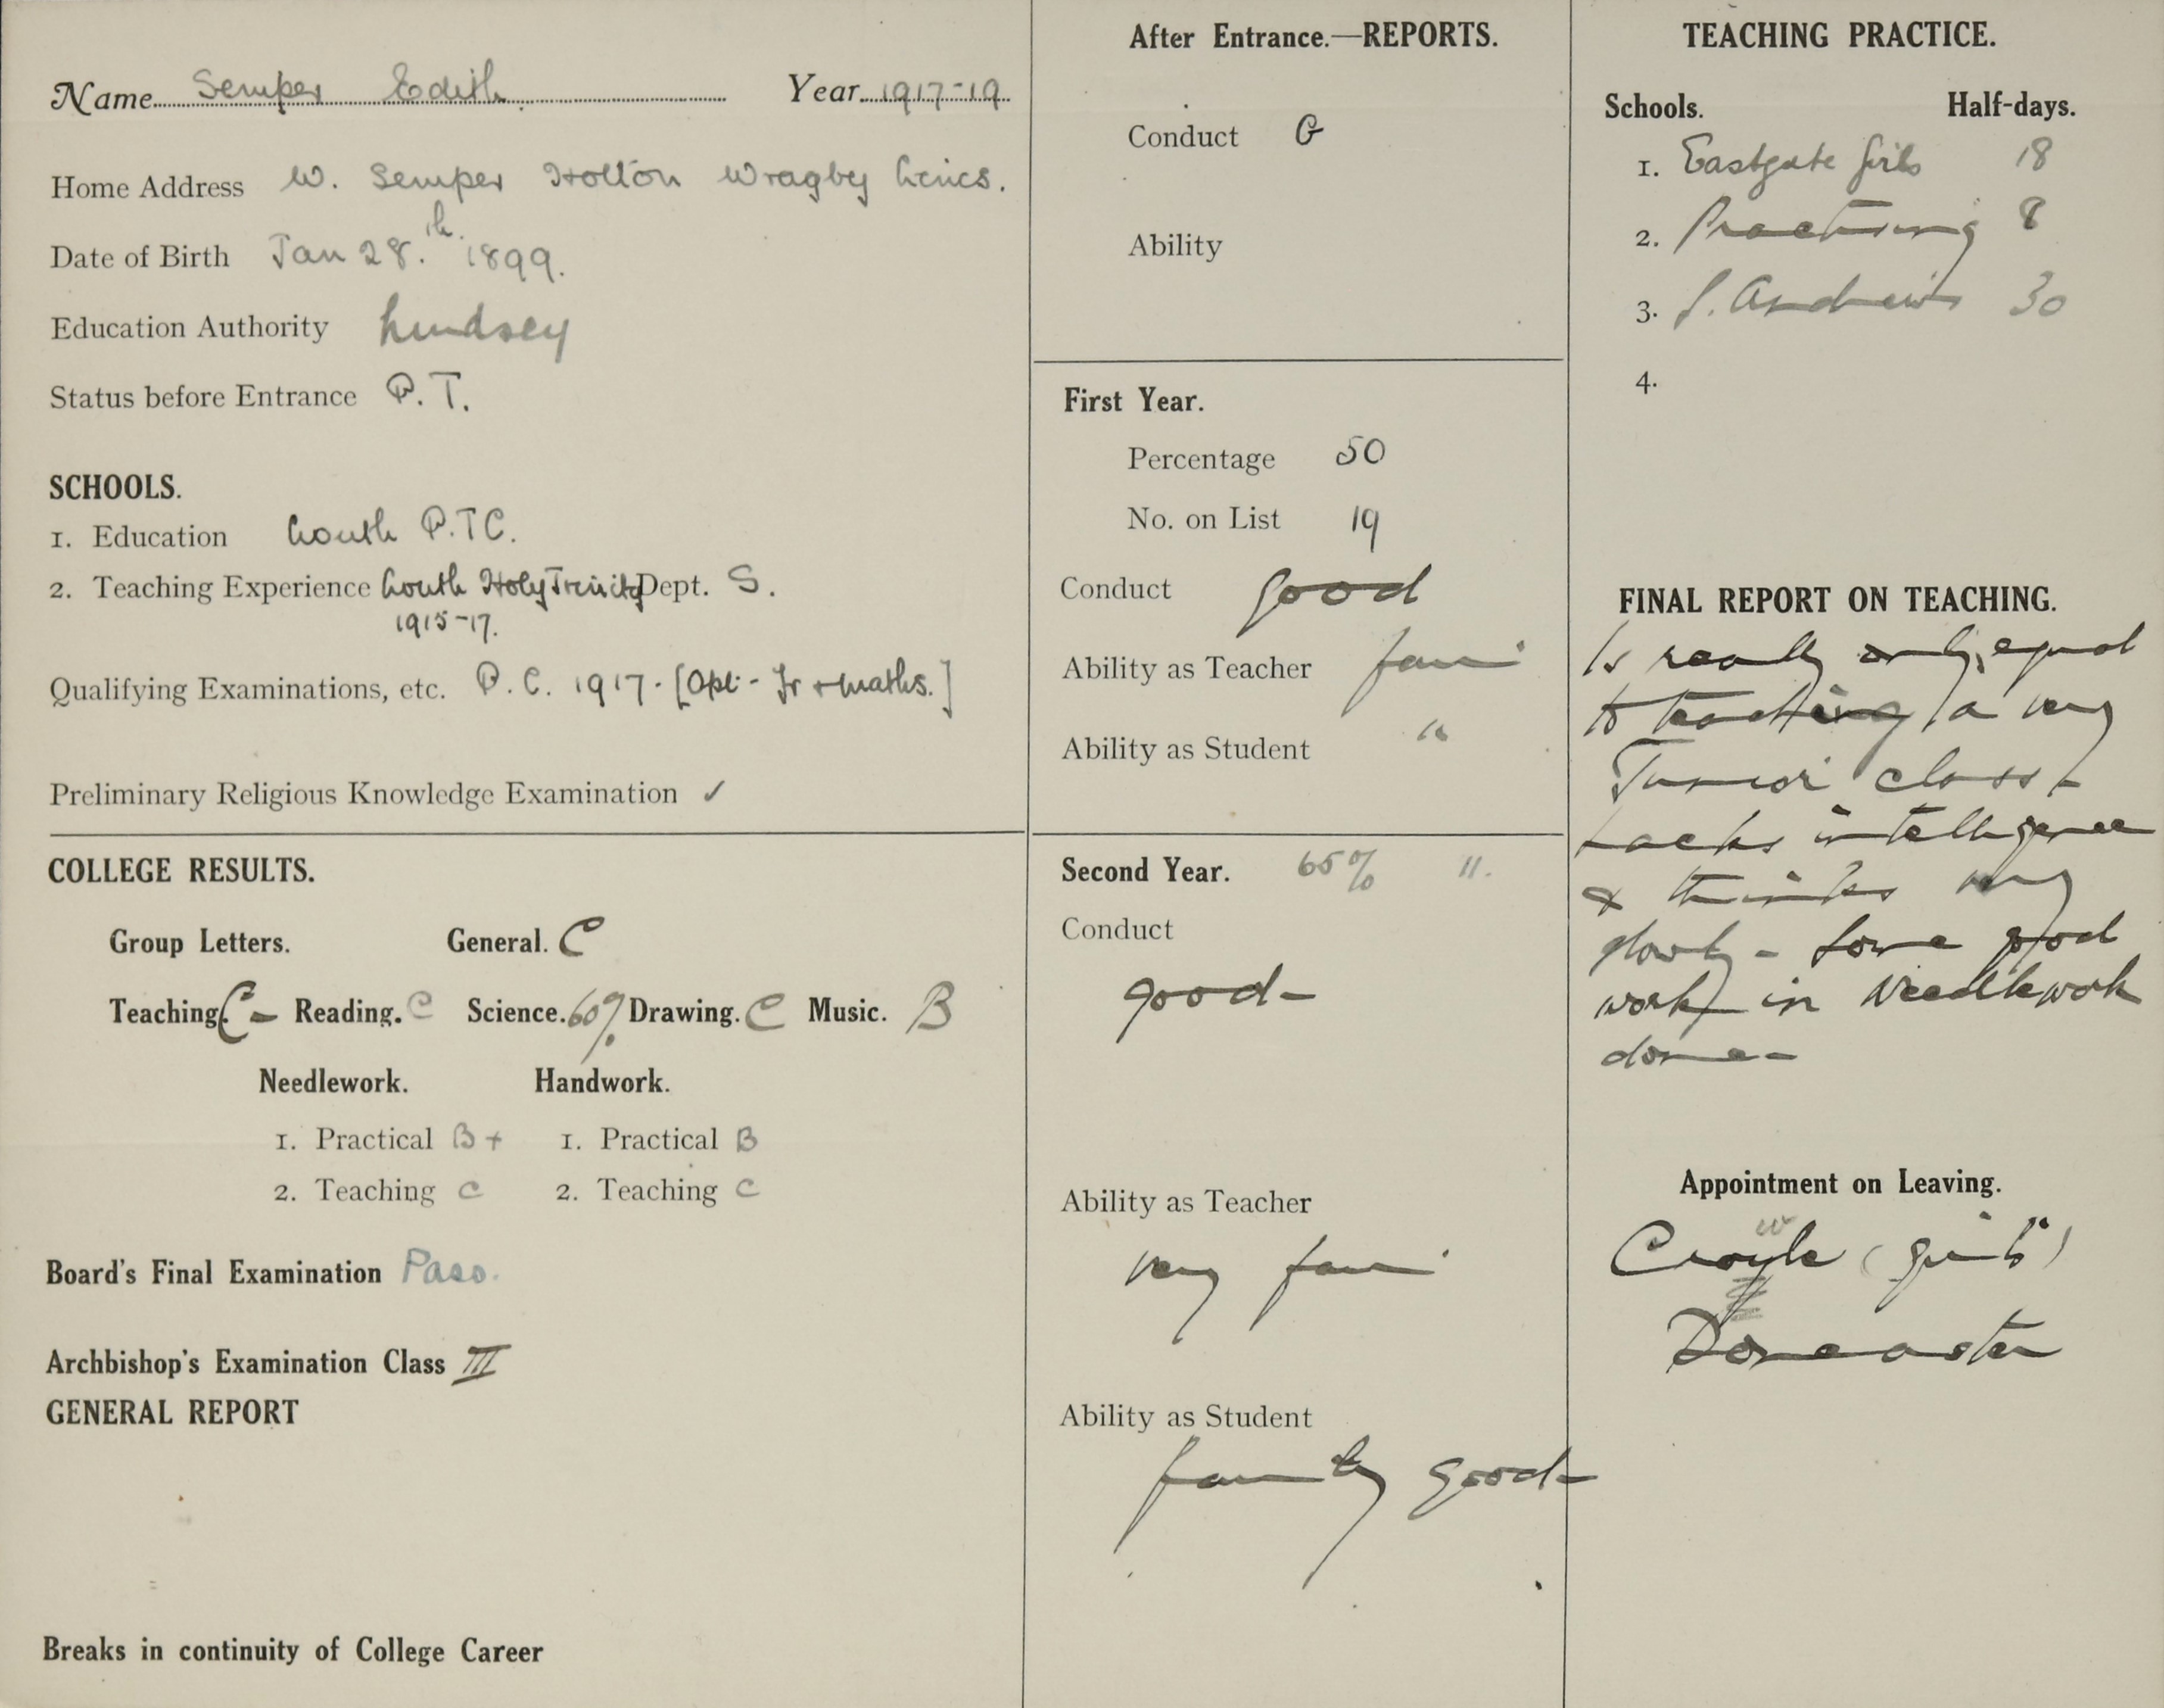 Name Semper Edith Year 1917-19
Home Address W. Semper Holton Wragby Lincs.
Date of Birth Jan 28.th 1899.
Education Authority Lindsey
Status before Entrance P.T.
SCHOOLS.
1. Education Louth P.TC.
2. Teaching Experience Louth Holy Trinity Dept. S.
1915-17.
Qualifying Examinations, etc. P.C. 1917. [Opt- Fr + maths.]
Preliminary Religious Knowledge Examination ✓
COLLEGE RESULTS.
Group Letters. General. C
Teaching C- Reading. C Science. 60% Drawing. C Music. B
Needlework. Handwork.
1. Practical B+ 1. Practical B
2. Teaching C 2. Teaching C
Board's Final Examination Pass.
Archbishop's Examination Class III
GENERAL REPORT
Breaks in continuity of College Career
After Entrance.—REPORTS.
Conduct G
Ability
First Year.
Percentage 50
No. on List 19
Conduct good
Ability as Teacher fair
Ability as Student "
Second Year. 65% 11.
Conduct
good-
Ability as Teacher
very fair
Ability as Student
fairly good-
TEACHING PRACTICE.
Schools. Half-days.
1. Eastgate Girls 18
2. Practising 8
3. S. Andrew's 30
4.
FINAL REPORT ON TEACHING.
Is really only equal
to teaching a very
Junior class-
Lacks intelligence
& thinks very
slowly - Some good
work in Needlework
done-
Appointment on Leaving.
(girls')
Doncaster